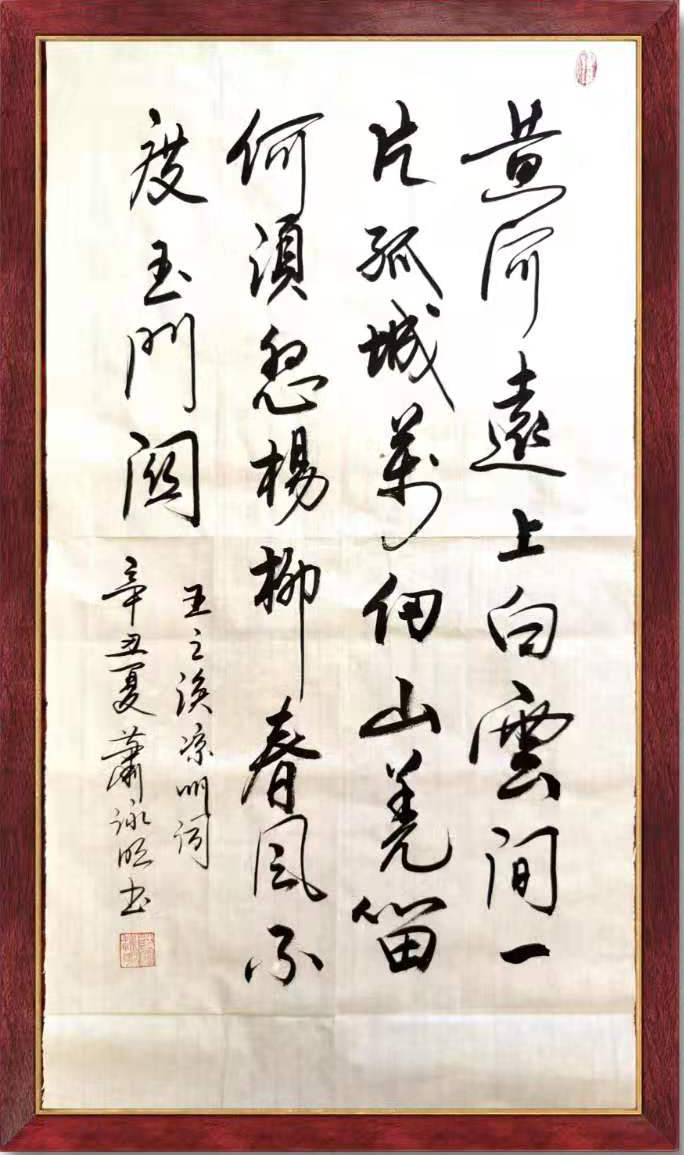 黄河遠上白雲间一
片孤城萬仞山羌笛
何須怨楊柳春风不
度玉門関
王之渙凉州词
辛丑夏蕭詠
书